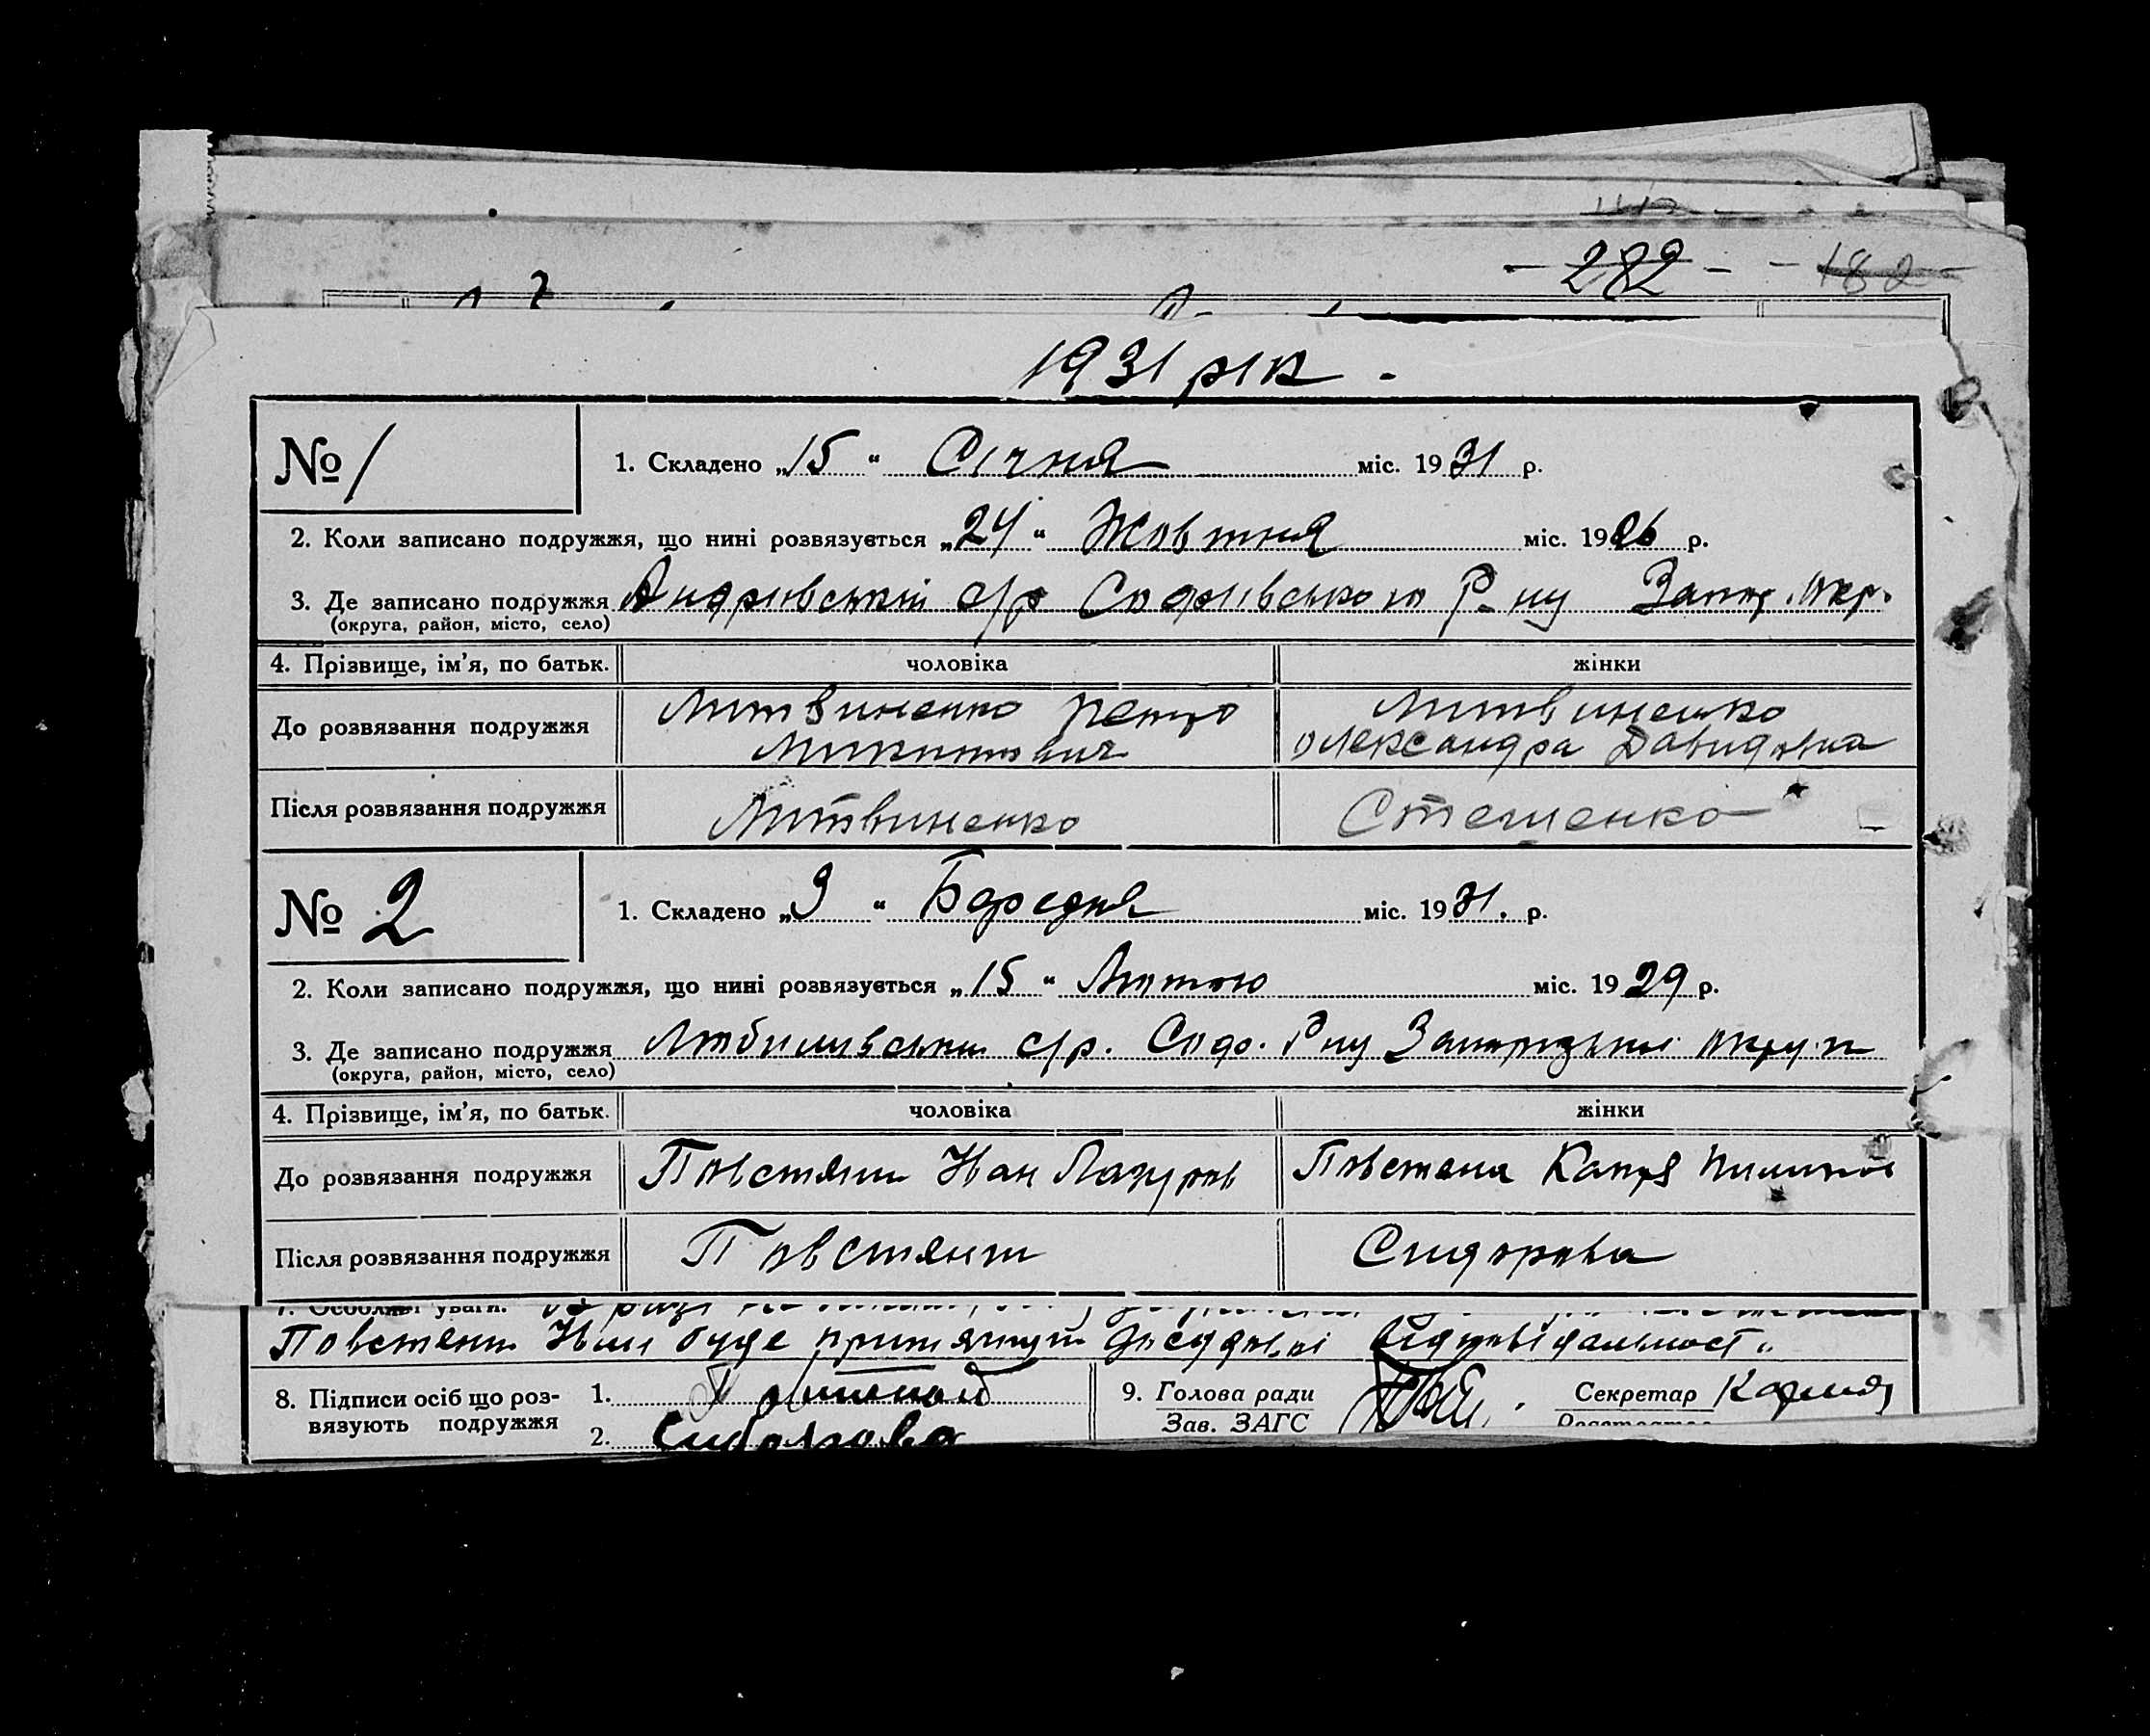 - 282 - - 182 -
1931 рік -
№ 1
1. Складено „15“ Січня міс. 1931 р.
2. Коли записано подружжя, що нині розвязується „24“ Жовтня міс. 1926 р.
3. Де записано подружжя Андріївській с/р Софіївського Р-ну Запор. окр.
(округа, район, місто, село)
4. Прізвище, ім'я, по батьк. чоловіка жінки
До розвязання подружжя Литвиненко Петро Литвиненко
Микитович Олександра Давидовна
Після розвязання подружжя Литвиненко Стешенко
№ 2
1. Складено „3“ міс. 1931. р.
2. Коли записано подружжя, що нині розвязується „15“ Лютого міс. 1929 р.
3. Де записано подружжя с/р. Соф. Р-ну Запорізької округи
(округа, район, місто, село)
4. Прізвище, ім'я, по батьк. чоловіка жінки
До розвязання подружжя Іван Катря
Після розвязання подружжя Сидорова
7. Особливі уваги.
Іван буде притягнут до судової відповідальност.
8. Підписи осіб що роз- 1. 9. Голова ради Секретар
вязують подружжя 2. Сидорова Зав. ЗАГС